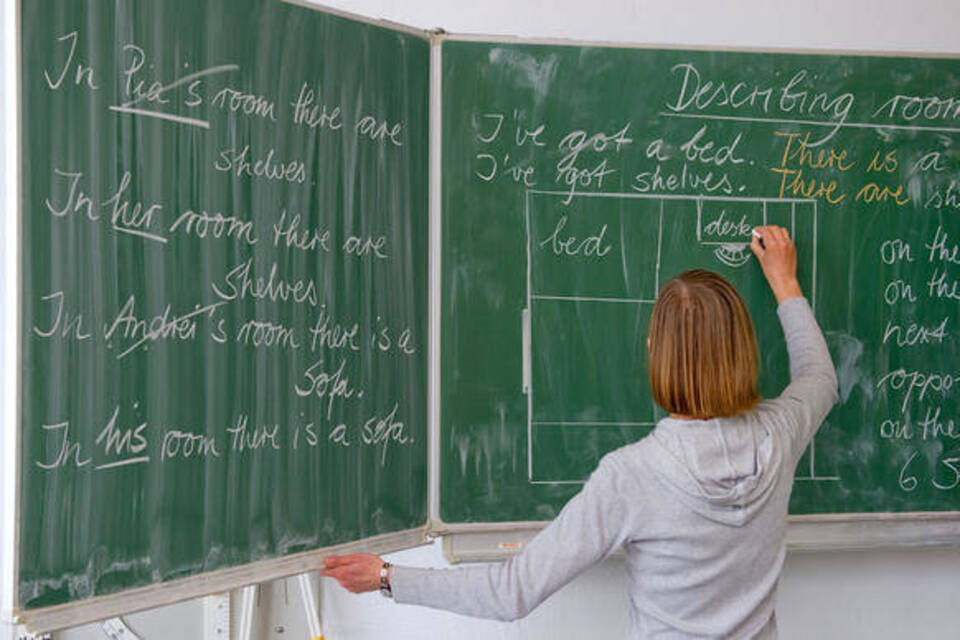 In Pia's room there are
shelves.
In her room there are
Shelves.
In Andrei's room there is a
Sofa.
In his room there is a sofa.
Describing
I've got a bed. There is a
I've got shelves. There are
bed
desk
on
on
next
on
6